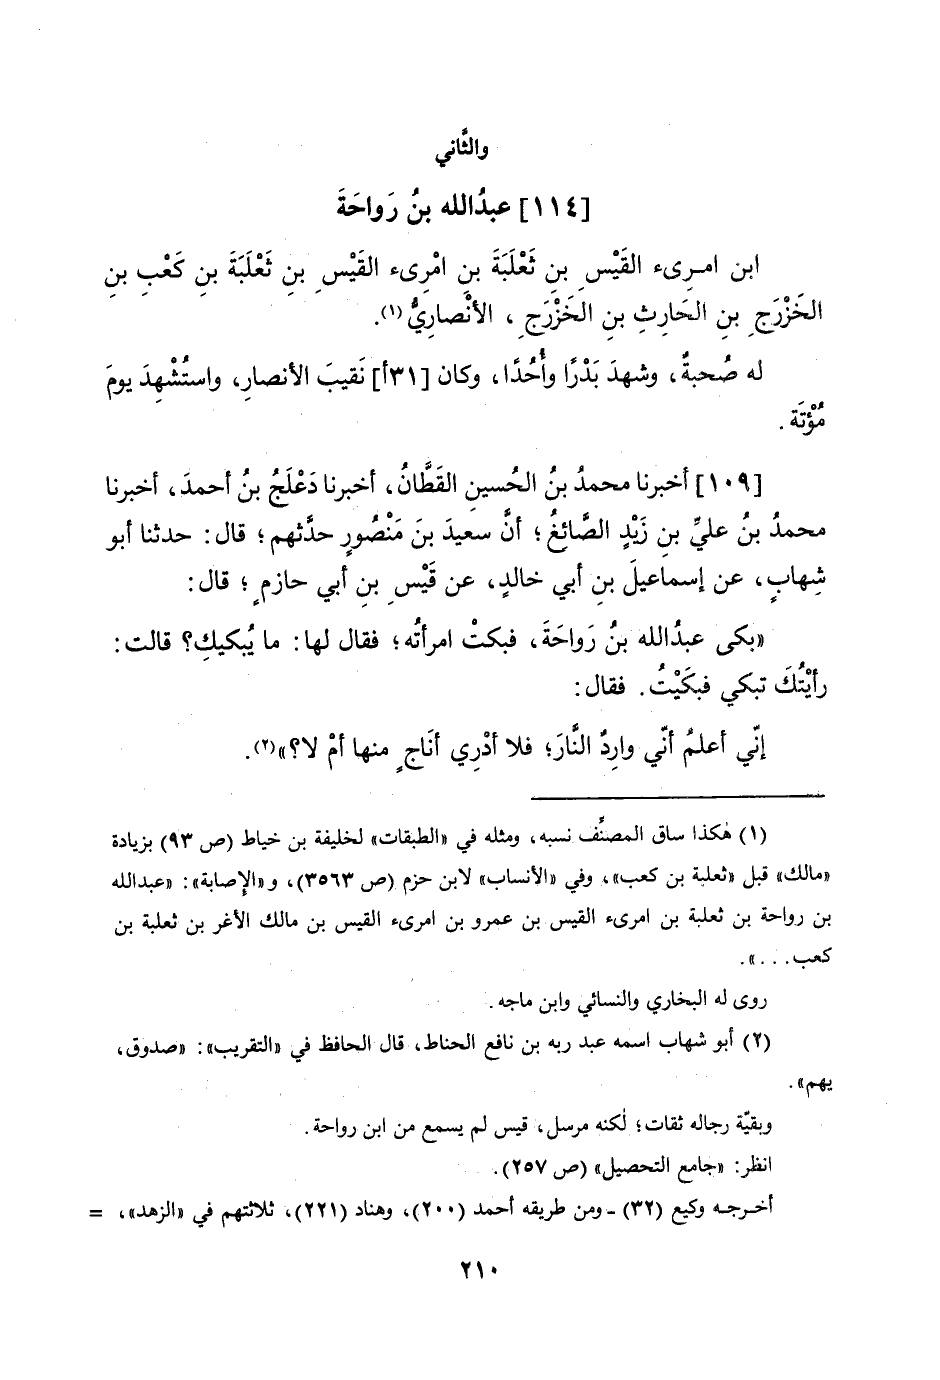 والثَّاني
[١١٤] عبدُالله بنُ رَواحَةَ
ابن امـرِىء القَيْسِ بنِ ثَعْلَبَةَ بنِ امْرِىء القَيْسِ بنِ ثَعْلَبَةَ بنِ كَعْبِ بنِ
الخَزْرَجِ بنِ الحَارِثِ بنِ الخَزْرَجِ ، الأنْصارِيُّ(١).
له صُحبةٌ، وشهدَ بَدْرًا وأُحُدًا، وكان [٣١أ] نَقيبَ الأنصارِ، واستُشْهِدَ يومَ
مُؤْتَة .
[١٠٩] أخبرنا محمدُ بنُ الحُسينِ القَطَّانُ، أخبرنا دَعْلَجُ بنُ أحمدَ، أخبرنا
محمدُ بنُ عليِّ بنِ زَيْدٍ الصَّائغُ؛ أنَّ سعيدَ بنَ مَنْصُورٍ حدَّثهم؛ قال: حدثنا أبو
شِهابٍ، عن إسماعيلَ بنِ أبي خالدٍ، عن قَيْسِ بنِ أبي حازمٍ؛ قال:
«بكى عبدُالله بنُ رَواحَةَ، فبكتْ امرأتُه؛ فقال لها: ما يُبكيكِ؟ قالت:
رأيْتُكَ تبكي فبكَيْتُ. فقال:
إنّي أعلمُ أنّي وارِدٌ النَّارَ؛ فلا أدْرِي أنَاجٍ منها أمْ لا؟»(٢).
(١) هٰكذا ساق المصنِّف نسبه، ومثله في «الطبقات» لخليفة بن خياط (ص ٩٣) بزيادة
«مالك» قبل «ثعلبة بن كعب»، وفي «الأنساب» لابن حزم (ص ٣٥٦٣)، و«الإصابة»: «عبدالله
بن رواحة بن ثعلبة بن امرىء القيس بن عمرو بن امرىء القيس بن مالك الأغر بن ثعلبة بن
كعب...».
روى له البخاري والنسائي وابن ماجه.
(٢) أبو شهاب اسمه عبد ربه بن نافع الحناط، قال الحافظ في «التقريب»: «صدوق،
يهم».
وبقيّة رجاله ثقات؛ لٰكنه مرسل، قيس لم يسمع من ابن رواحة.
انظر: «جامع التحصيل» (ص ٢٥٧).
أخـرجـه وكيع (٣٢) ـ ومن طريقه أحمد (٢٠٠)، وهناد (٢٢١)، ثلاثتهم في «الزهد»، =
٢١٠